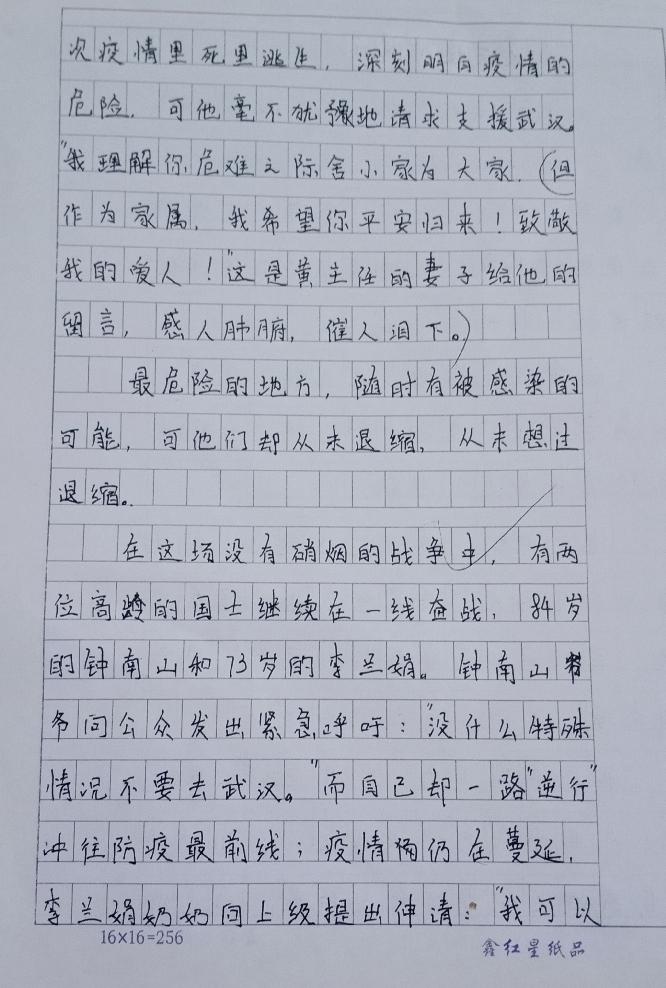 次疫情里死里逃生，深刻明白疫情的
危险，可他毫不犹豫地请求支援武汉。
“我理解你危难之际舍小家为大家，但
作为家属，我希望你平安归来！致敬
我的爱人！”这是黄主任的妻子给他的
留言，感人肺腑，催人泪下。
最危险的地方，随时有被感染的
可能，可他们却从未退缩，从未想过
退缩。
在这场没有硝烟的战争中，有两
位高龄的国士继续在一线奋战，84岁
的钟南山和73岁的李兰娟。钟南山
向公众发出紧急呼吁：“没什么特殊
情况不要去武汉。”而自己却一路“逆行”
冲往防疫最前线；疫情仍在蔓延，
李兰娟奶奶向上级提出申请：“我可以
16×16=256
鑫红星纸品